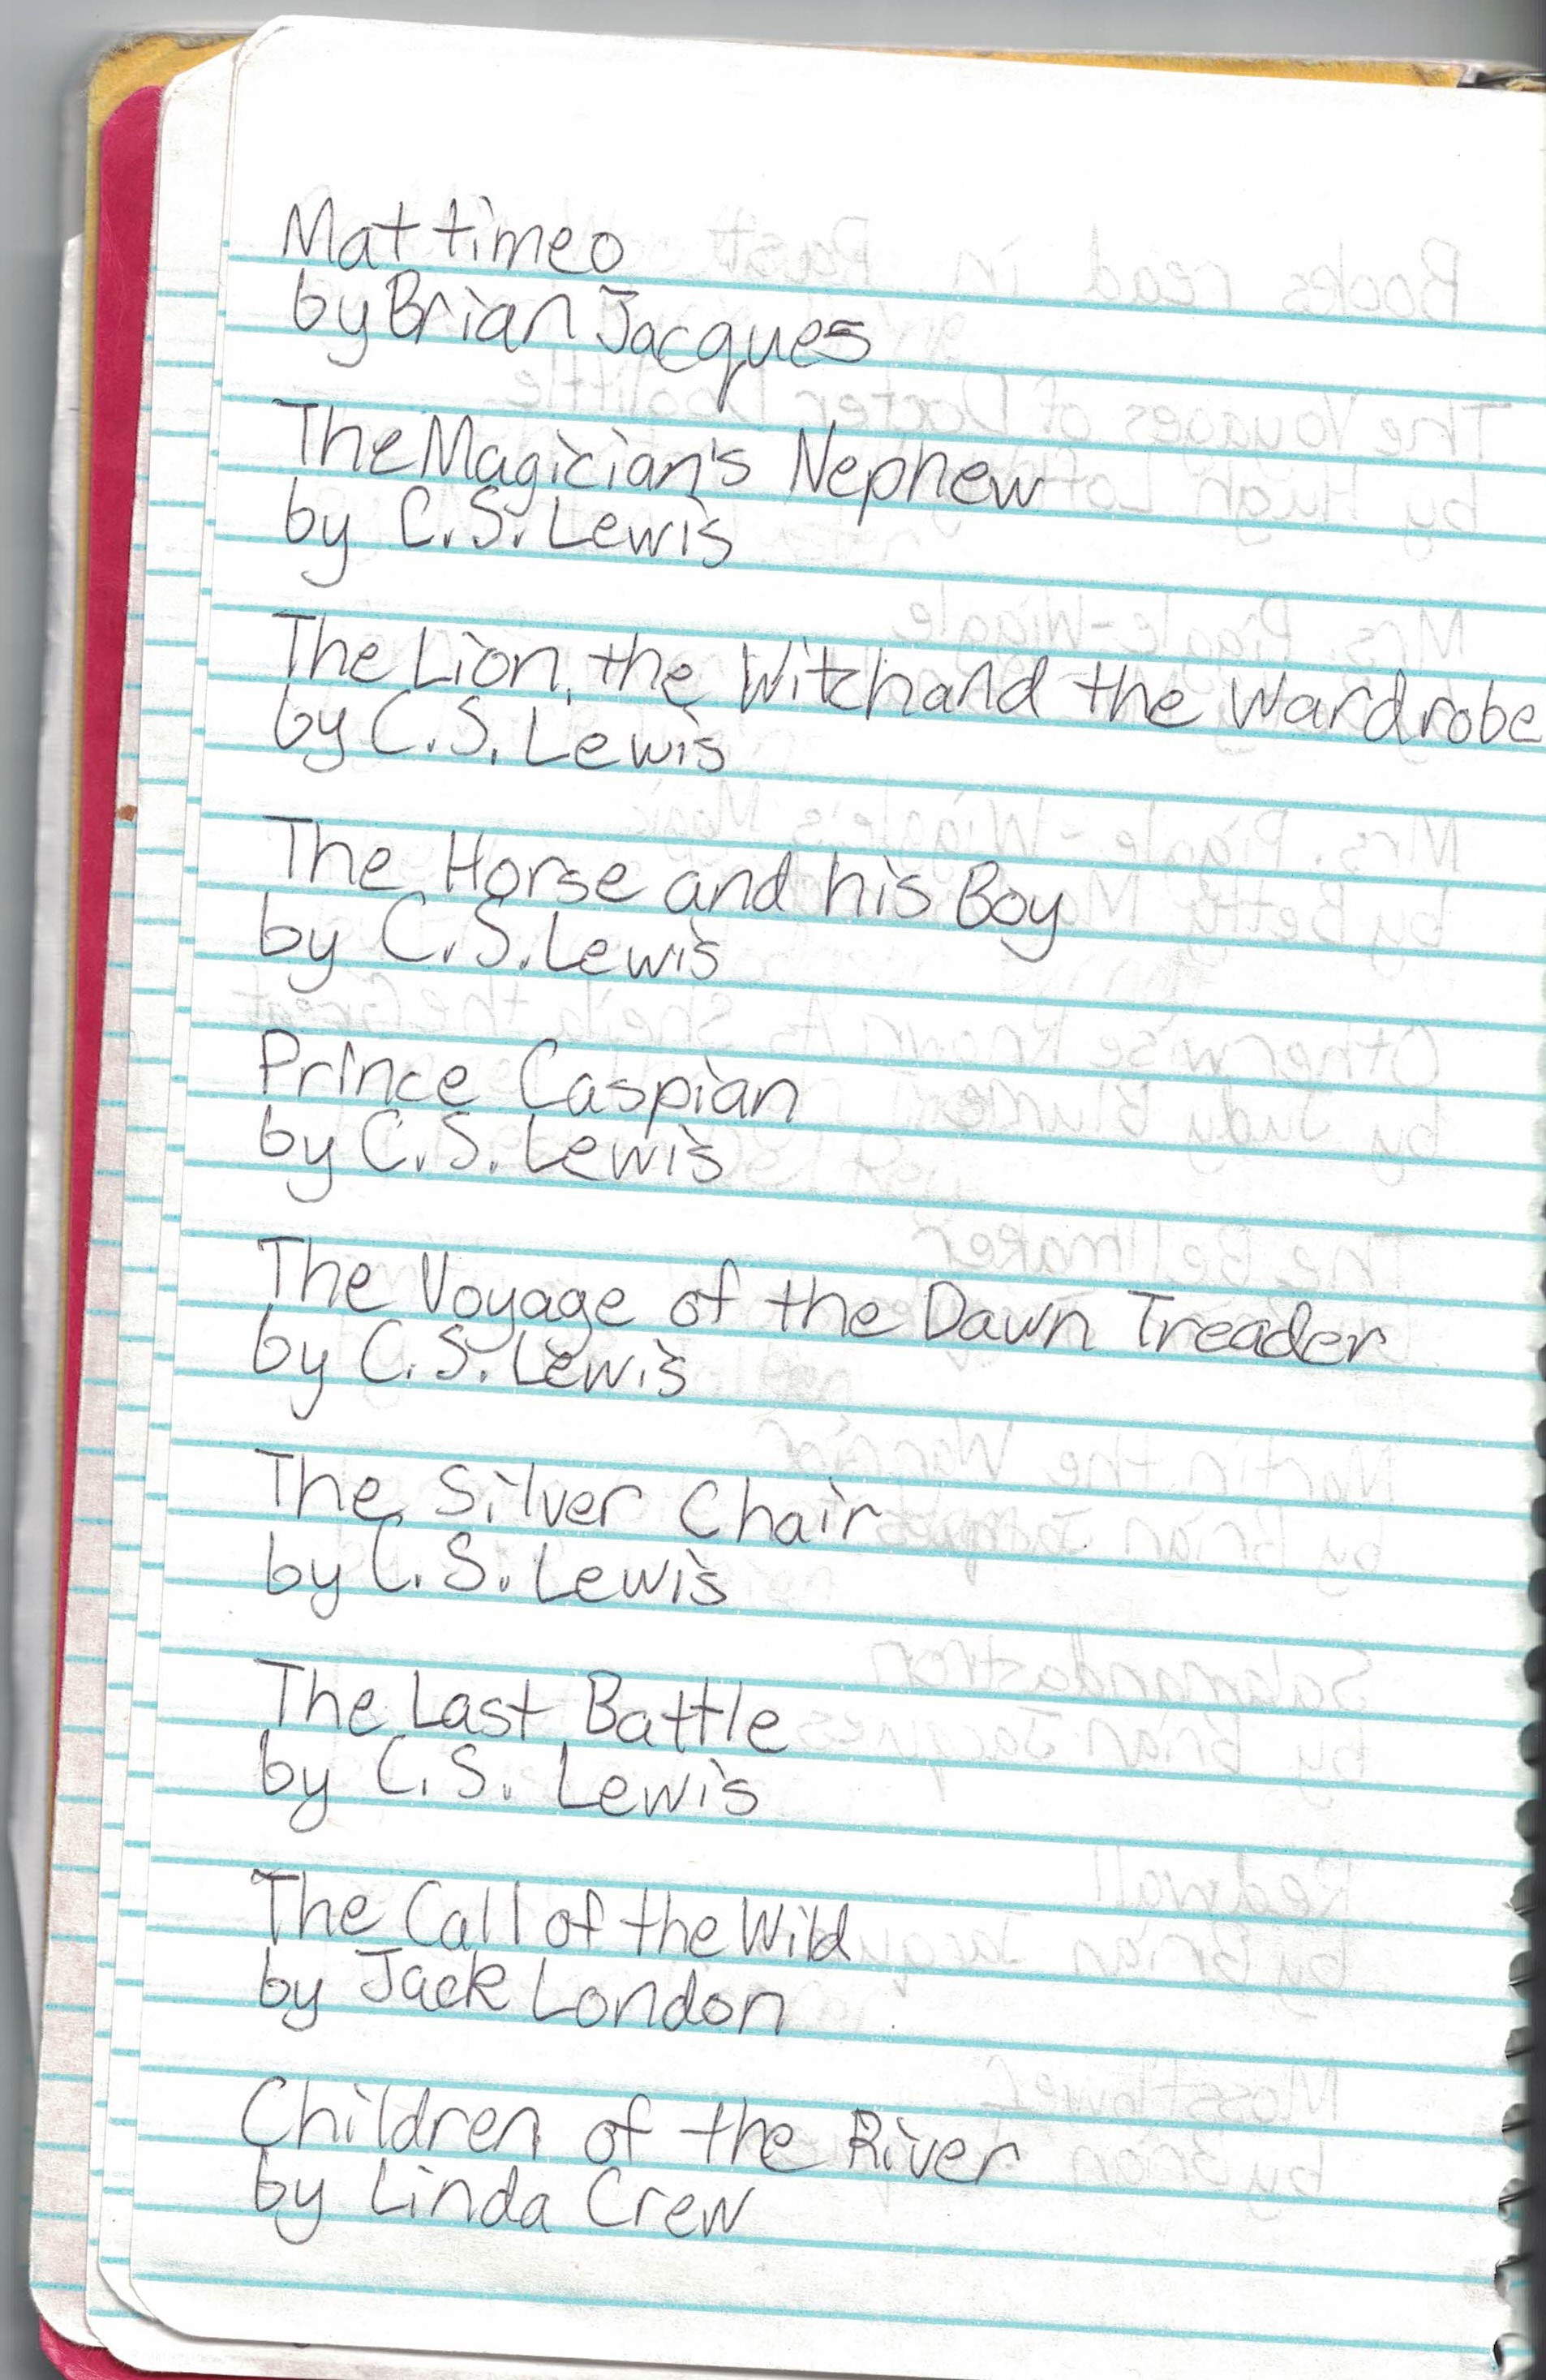 Mattimeo
by Brian Jacques
The Magician's Nephew
by C.S. Lewis
The Lion, the Witch and the Wardrobe
by C.S. Lewis
The Horse and his Boy
by C.S. Lewis
Prince Caspian
by C.S. Lewis
The Voyage of the Dawn Treader
by C.S. Lewis
The Silver Chair
by C.S. Lewis
The Last Battle
by C.S. Lewis
The Call of the Wild
by Jack London
Children of the River
by Linda Crew